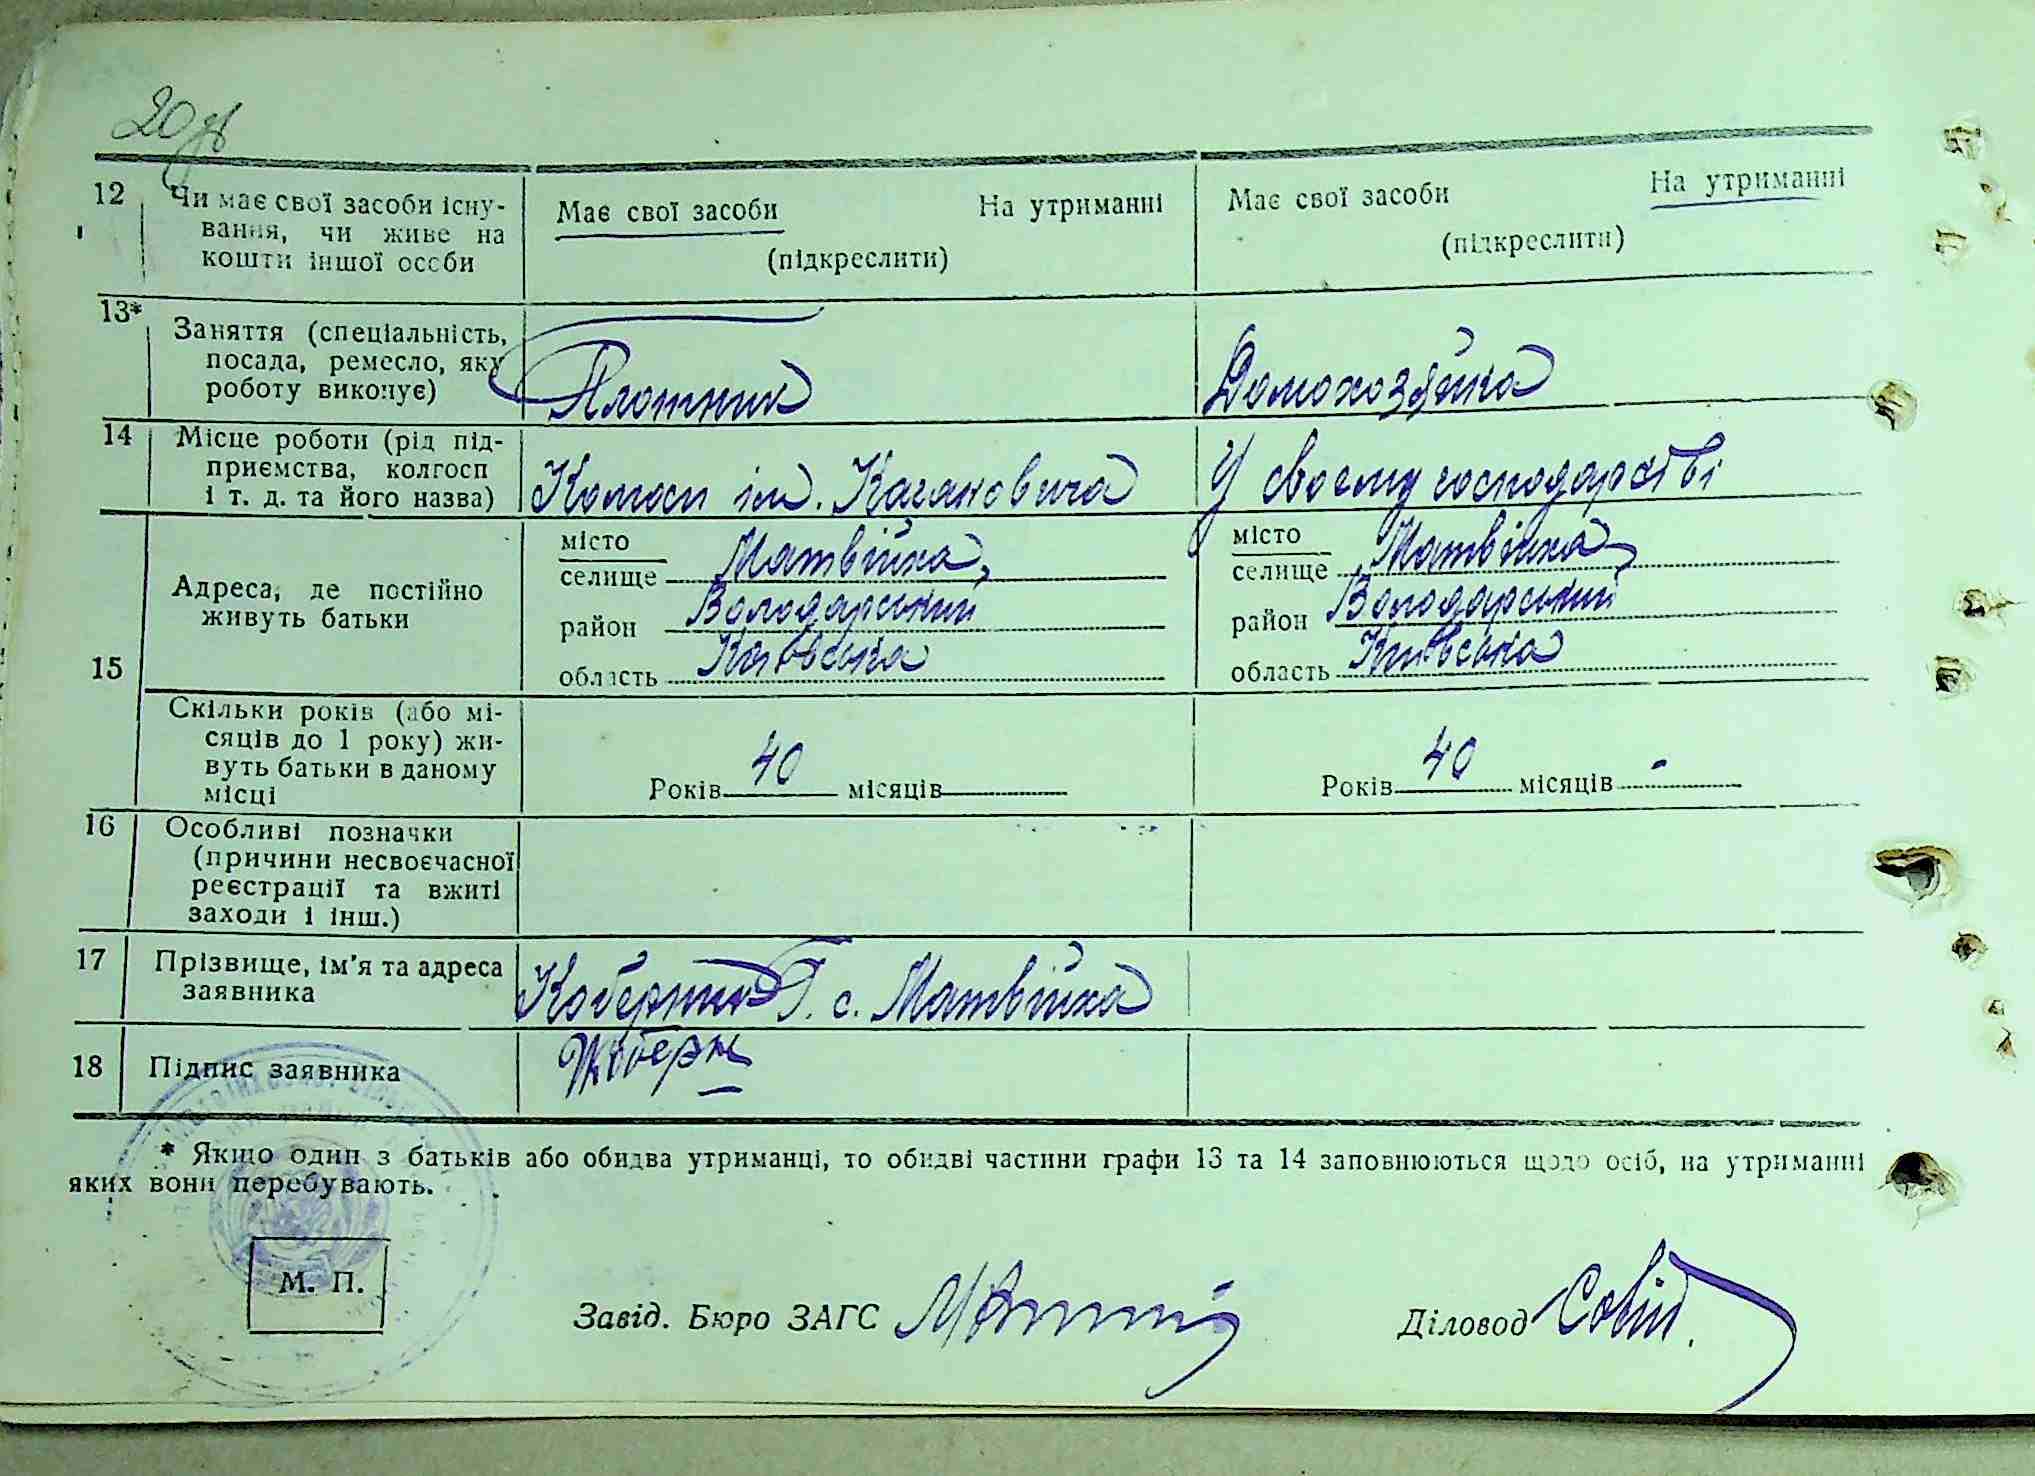 20
12 Чи має свої засоби існу-
вання, чи живе на
кошти іншої особи
Має свої засоби На утриманні
(підкреслити)
Має свої засоби На утриманні
(підкреслити)
13* Заняття (спеціальність,
посада, ремесло, яку
роботу виконує)
Плотник
Домохозяйка
14 Місце роботи (рід під-
приємства, колгосп
і т. д. та його назва)
ім. Кагановича
У своєму господарстві
15 Адреса, де постійно
живуть батьки
місто
селище Матвійка,
район Володарський
область Київська
місто
селище Матвійка,
район Володарський
область Київська
Скільки років (або мі-
сяців до 1 року) жи-
вуть батьки в даному
місці
Років 40 місяців
Років 40 місяців -
16 Особливі позначки
(причини несвоєчасної
реєстрації та вжиті
заходи і інш.)
17 Прізвище, ім'я та адреса
заявника
Г. с. Матвійка
18 Підпис заявника
* Якщо один з батьків або обидва утриманці, то обидві частини графи 13 та 14 заповнюються щодо осіб, на утриманні
яких вони перебувають.
М. П.
Завід. Бюро ЗАГС
Діловод